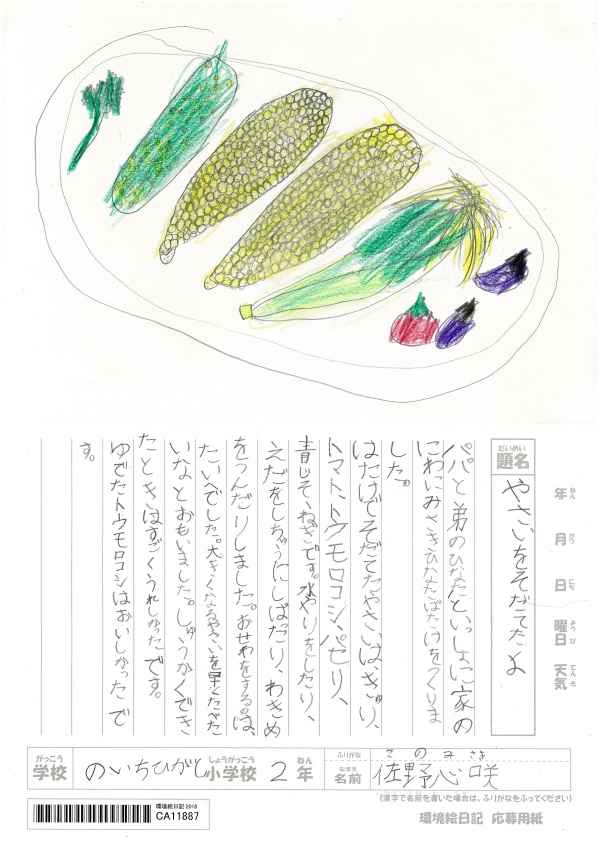 だいめい
題名
やさいをそだてたよ
年 ねん
月 がつ
日 にち
曜日 ようび
天気 てんき
パパと弟のひなたといっしょに家の
にわにみさきひなたばたけをつくりま
した。
はたけでそだてたやさいは、きゅり、
トマト、トウモロコシ、パセリ、
青じそ、ねぎです。水やりをしたり、
えだをしちゅうにしばったり、わきめ
をつんだりしました。おせわをするのは、
たいへでした。大きくなるやさいを早くたべた
いなとおもいました。しゅうかくでき
たときはすごくうれしかったです。
ゆでたトウモロコシはおいしかったで
す。
がっこう
学校
のいちひがし
しょうがっこう
小学校
2
ねん
年
ふりがな
さの みさき
なまえ
名前
佐野心咲
(漢字で名前を書いた場合は、ふりがなをふってください)
環境絵日記2018
CA11887
環境絵日記 応募用紙